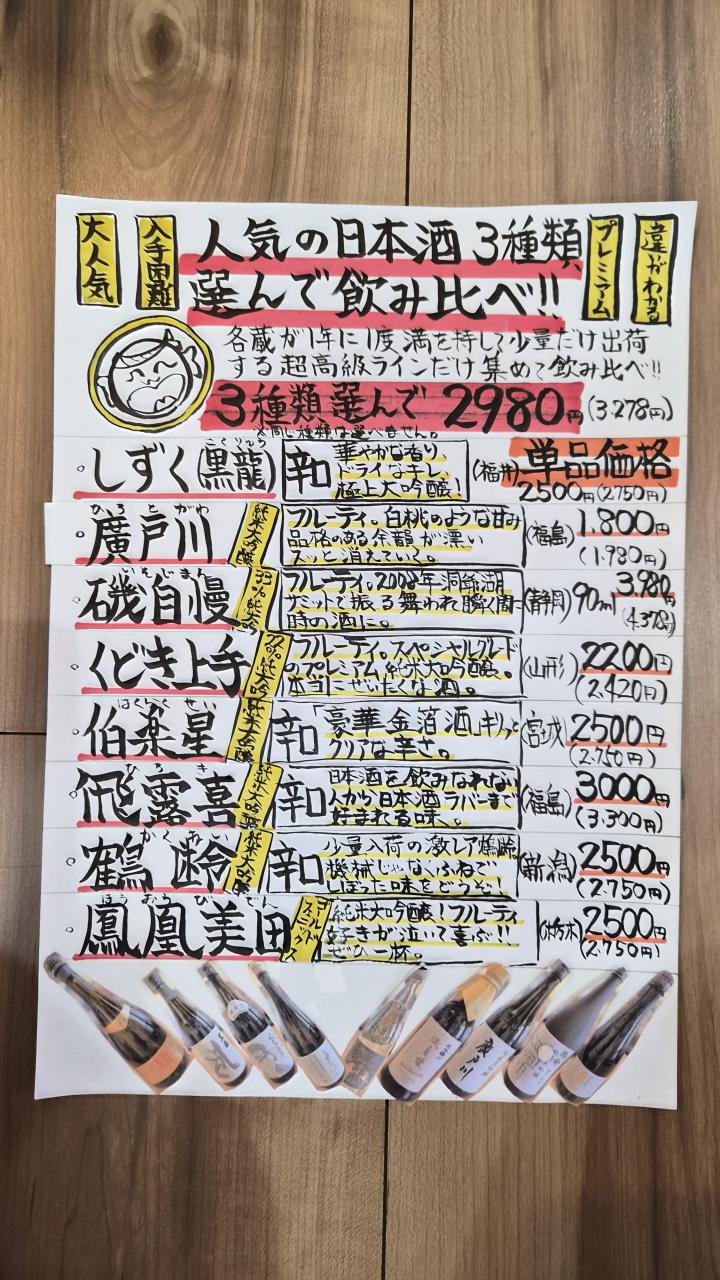 大人気
入手困難
人気の日本酒3種類
選んで飲み比べ!!
プレミアム
違がわかる
各蔵が1年に1度満を持して少量だけ出荷
する超高級ラインだけ集めて飲み比べ!!
3種類選んで 2980円(3.278円)
※同じ種類は選べません。
単品価格
こくりゅう
しずく(黒龍)
辛口
華やかな香り
ドライなキレ
極上大吟醸!
(福井)
2500円(2750円)
ひろとがわ
廣戸川
純米大吟醸
フルーティ。白桃のような甘み
品格のある余韻が漂い
スッと消えていく。
(福島)
1.800円
(1.980円)
いそじまん
磯自慢
フルーティ。2008年洞爺湖
サミットで振る舞われ瞬く間に
時の酒に。
(静岡)
90ml
3.980円
(4.378円)
くどき上手
22%純大吟
フルーティ。スペシャルグレード
のプレミアム純米大吟醸。
本当にぜいたくな酒。
(山形)
2200円
(2.420円)
はくらくせい
伯楽星
純米大吟醸
辛口
「豪華金箔酒」キリッと
クリアな辛さ。
(宮城)
2500円
(2.750円)
ひろき
飛露喜
純米大吟醸
辛口
日本酒を飲みなれない
人から日本酒ラバーまで
好まれる味。
(福島)
3000円
(3.300円)
かくれい
鶴齢
純米大吟醸
辛口
少量入荷の激レア鶴齢
機械じゃなくふねで
しぼった味をどうぞ!
(新潟)
2500円
(2.750円)
ほうおうびでん
鳳凰美田
ゴールドフェニックス
純米大吟醸!フルーティ
好きが泣いて喜ぶ!!
ぜひ一杯。
(栃木)
2500円
(2.750円)
廣戸川